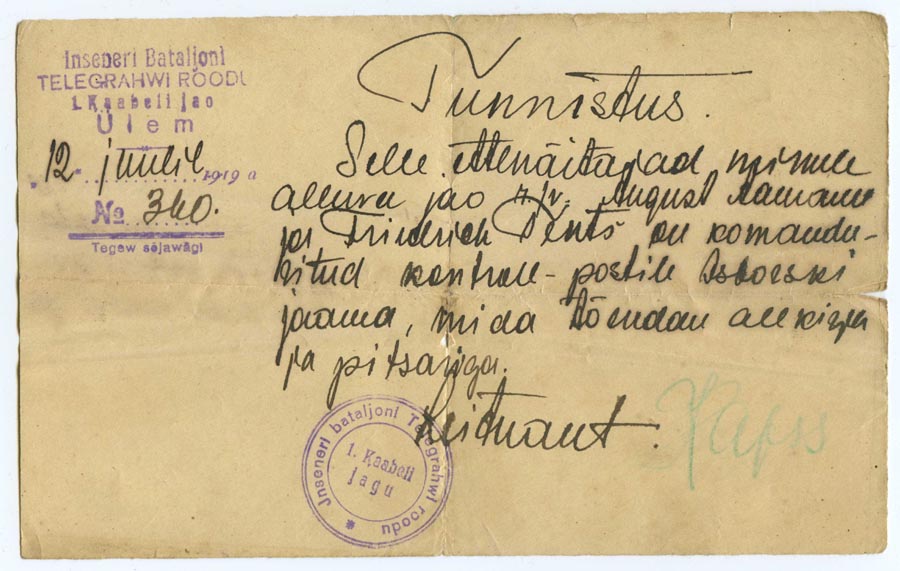 Inseneri Bataljoni
TELEGRAHWI ROODU
1. Kaabeli jao
Ülem
"12" juulil 1919 a
№ 340.
Tegew sõjawägi
Tunnistus.
Selle ettenäitajad minule
alluva jao n./v. August
ja Friedrich on komandee-
ritud kontroll-postile Isborski
jaama, mida tõendan allkirja
ja pitsariga.
Leitnant.
Inseneri bataljoni Telegrahwi roodu *
1. Kaabeli
jagu